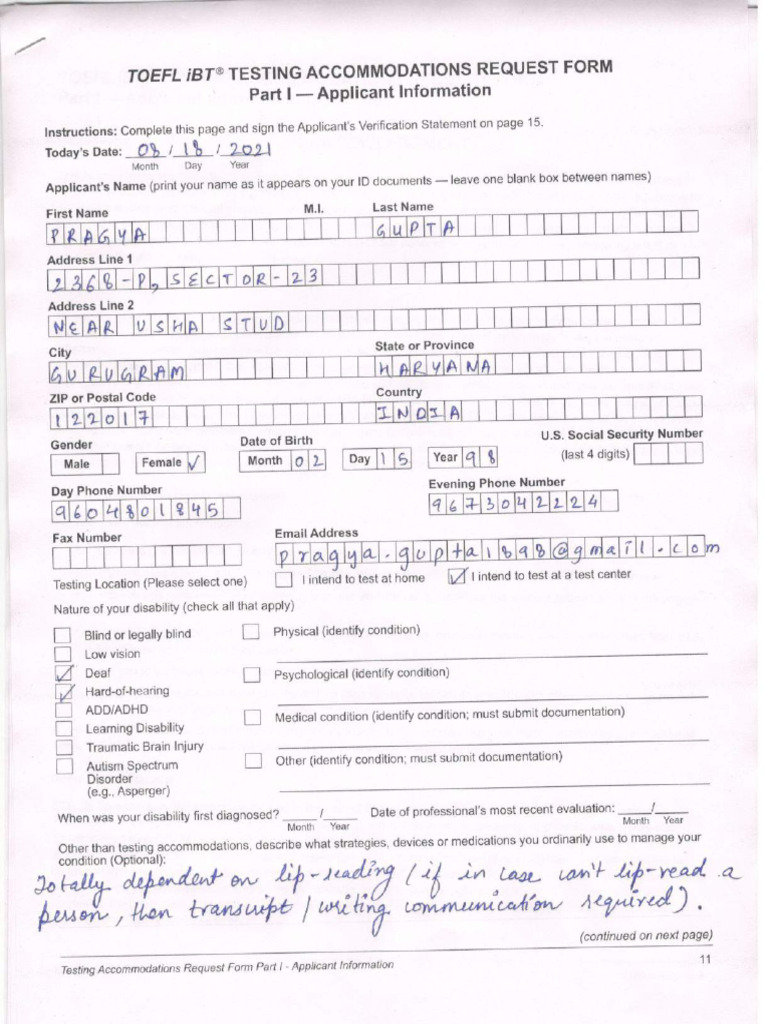 TOEFL iBT® TESTING ACCOMMODATIONS REQUEST FORM
Part I — Applicant Information
Instructions: Complete this page and sign the Applicant's Verification Statement on page 15.
Today's Date: 08 / 18 / 2021
Month Day Year
Applicant's Name (print your name as it appears on your ID documents — leave one blank box between names)
First Name M.I. Last Name
PRAGYA GUPTA
Address Line 1
2368-P, SECTOR-23
Address Line 2
NEAR USHA STUD
City State or Province
GURUGRAM HARYANA
ZIP or Postal Code Country
122017 INDIA
Gender Date of Birth U.S. Social Security Number
Male Female ✓ Month 02 Day 15 Year 98 (last 4 digits)
Day Phone Number Evening Phone Number
9604801845 9673042224
Fax Number Email Address
pragya.gupta1898@gmail.com
Testing Location (Please select one) I intend to test at home ✓ I intend to test at a test center
Nature of your disability (check all that apply)
Blind or legally blind Physical (identify condition)
Low vision
✓ Deaf Psychological (identify condition)
✓ Hard-of-hearing
ADD/ADHD Medical condition (identify condition; must submit documentation)
Learning Disability
Traumatic Brain Injury
Autism Spectrum Other (identify condition; must submit documentation)
Disorder
(e.g., Asperger)
When was your disability first diagnosed? ____/____ Date of professional's most recent evaluation: ____/____
Month Year Month Year
Other than testing accommodations, describe what strategies, devices or medications you ordinarily use to manage your
condition (Optional):
Totally dependent on lip-reading (if in case can't lip-read a
person, then transcript / writing communication required).
(continued on next page)
Testing Accommodations Request Form Part I - Applicant Information 11